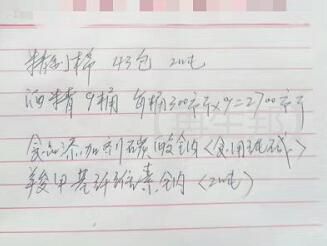 精制棉 43包 2吨
酒精 9桶 每桶300公斤×9=2700公斤
食品添加剂碳酸钠〈食用纯碱〉
羧甲基纤维素钠〈2吨〉